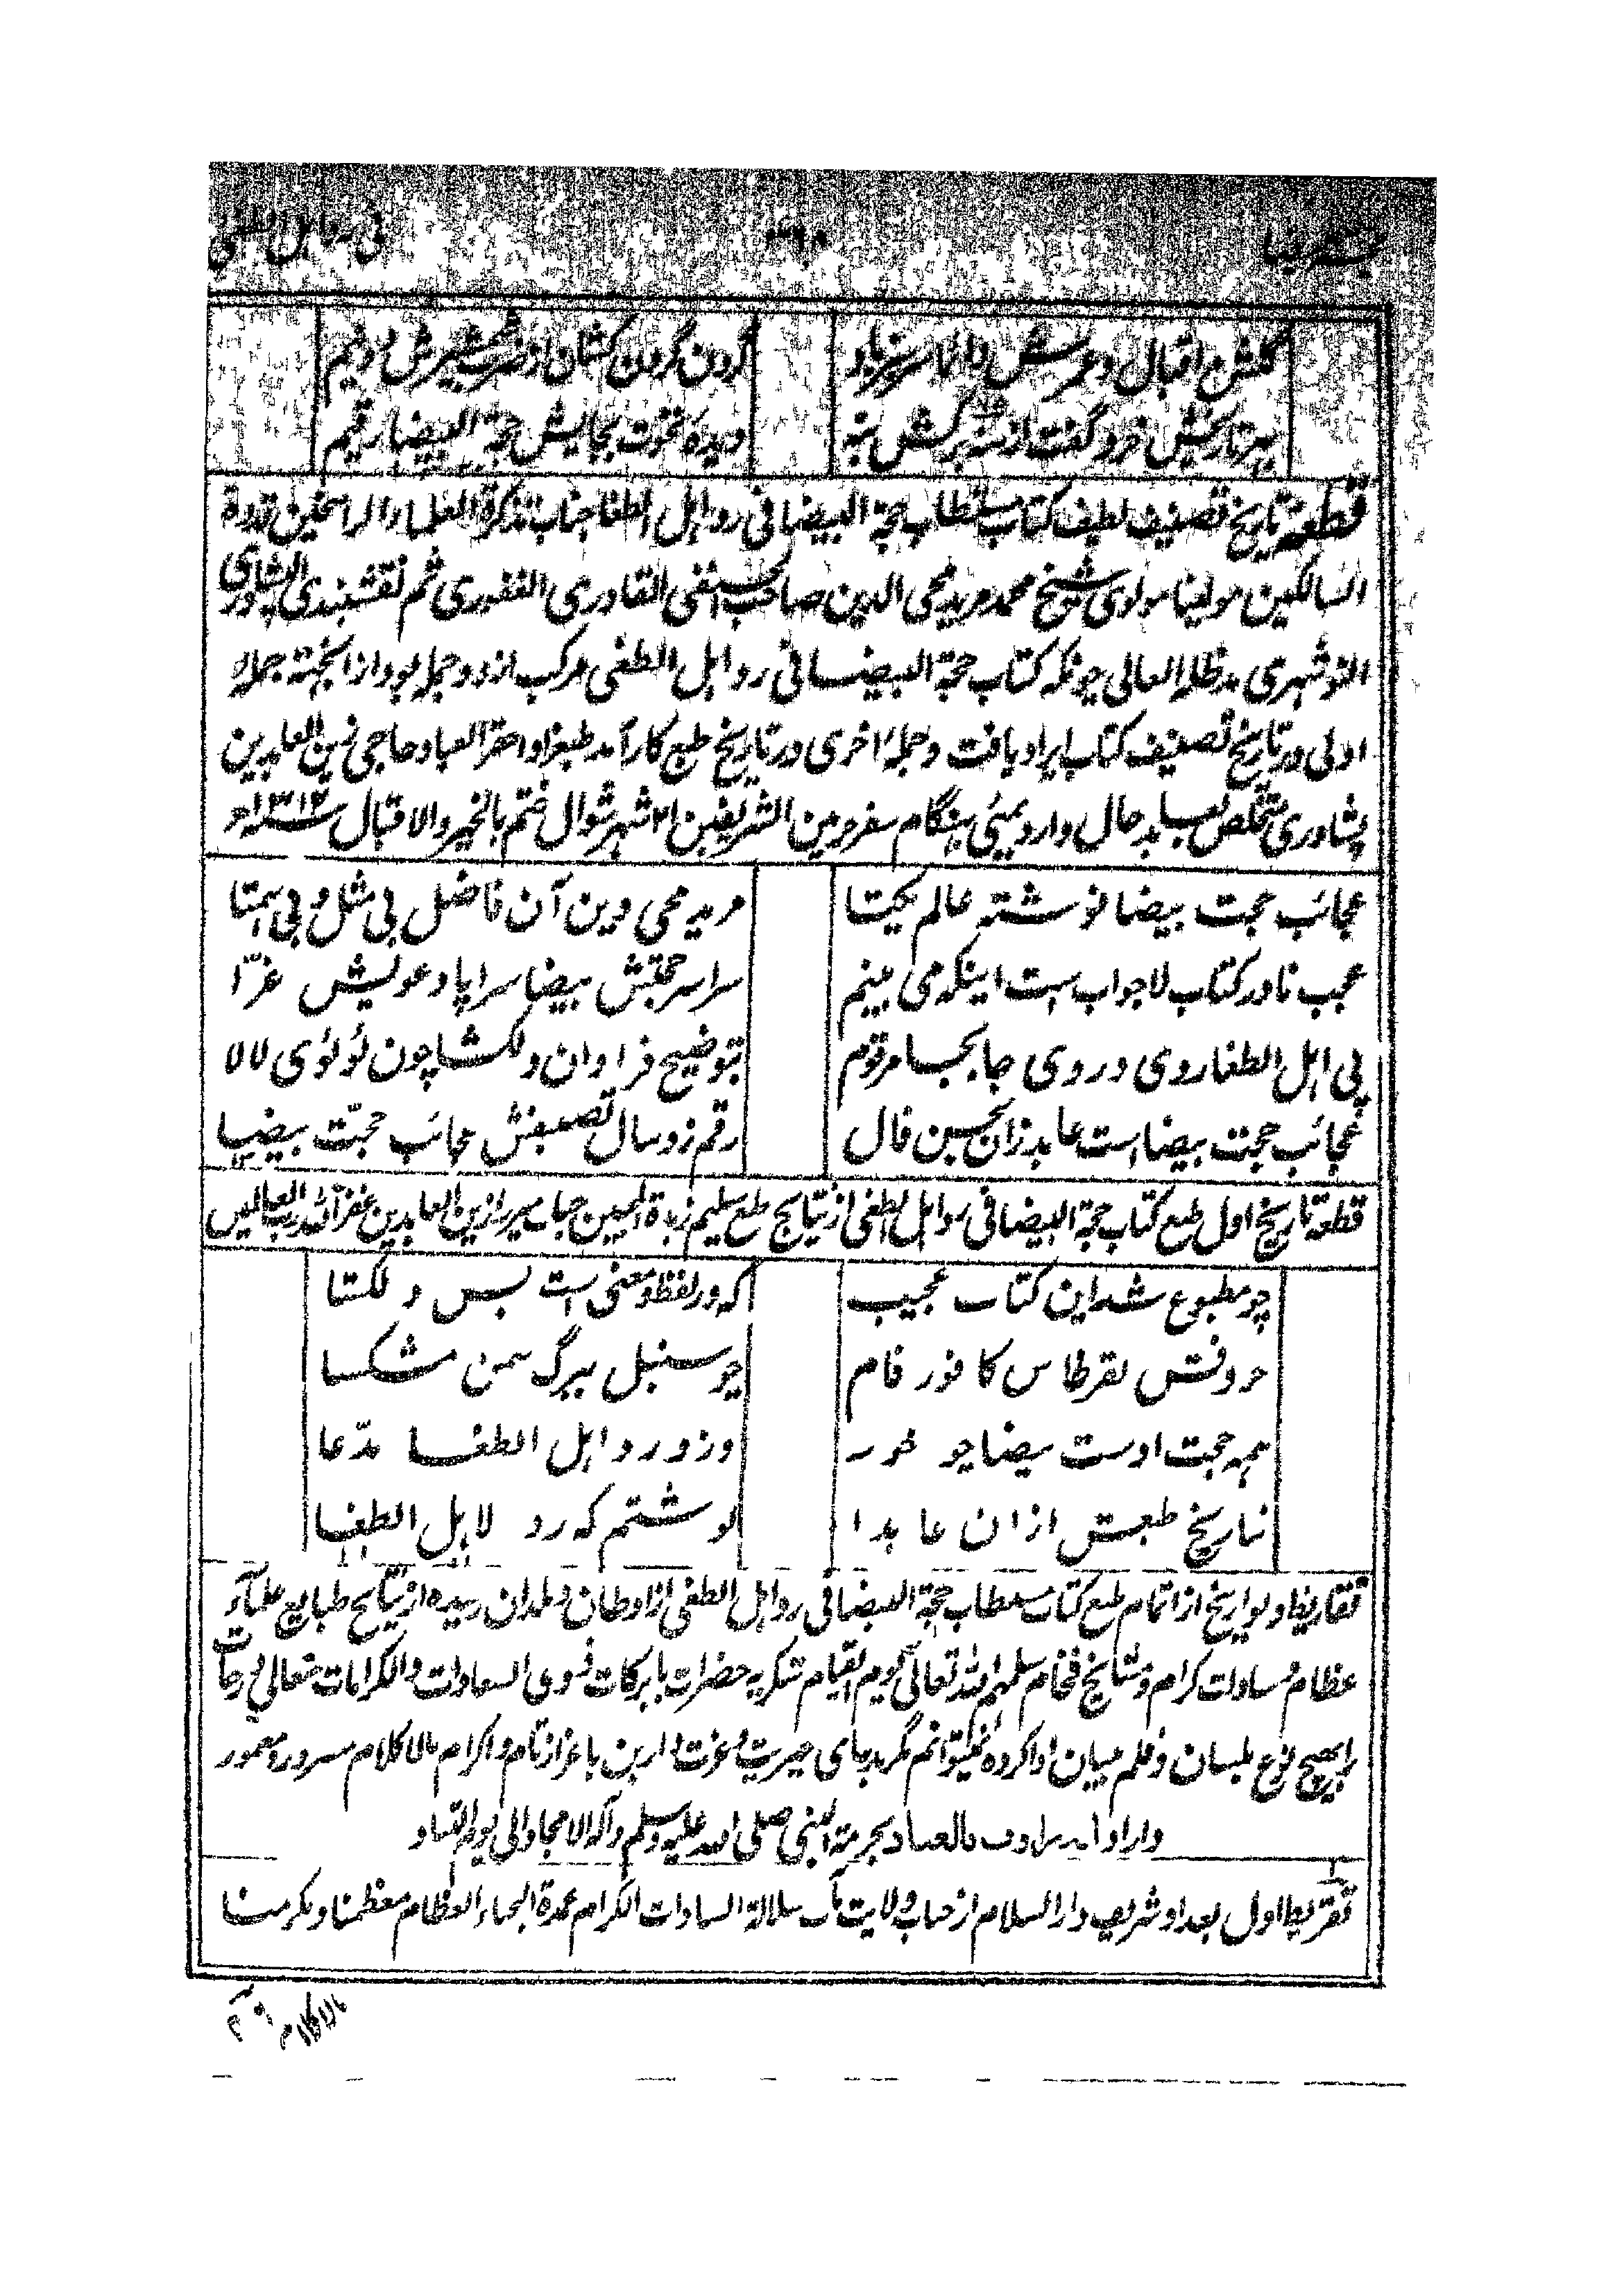 گلشن اقبال و عمرش دائما سرسبز باد
گردن گردن کشان از ضرب شمشیرش دو نیم
بهر تاریخش خرد گفت از سر
دیده نخوت بجایش حجة البیضا رقیم
قطعه تاریخ تصنیف لطیف کتاب مستطاب حجة البیضا فی رد اهل الطغا جناب تذکرة العلماء الراسخین قدوة
السالکین مولینا مولوی شیخ محمد مرید محی الدین صاحب الحنفی القادری الغفوری ثم نقشبندی الپشاوری
النوشهری مدظله العالی چونکه کتاب حجة البیضا فی رد اهل الطغی مرکب از دو جمله بود ازینجهة جمله
اولی در تاریخ تصنیف کتاب ایراد یافت و جملهٔ اخری در تاریخ طبع کار آمد طبعزاد احقر العباد حاجی زین العابدین
پشاوری متخلص بعابد حال وارد بمبئی هنگام سفر حرمین الشریفین ۲۱ شهر شوال ختم بالخیر والاقبال سنه ۱۳۱۲
عجائب حجت بیضا نوشته عالم یکتا
مرید محی دین آن فاضل بی مثل و بی همتا
عجب نادر کتاب لاجواب است اینکه می بینم
سراسر حجتش بیضا سراپا دعویش غرّا
پی اهل الطغا روی در وی جا بجا مرقوم
بتوضیح فراوان دلکشا چون لؤلؤی لالا
عجائب حجت بیضا است عابد زان بحسین فال
رقم زد سال تصنیفش عجائب حجّت بیضیا
قطعه تاریخ اول طبع کتاب حجة البیضا فی رد اهل الطغی از نتایج طبع سلیم زبدة المحبین جناب میرزا زین العابدین غفر الله رب العالمین
چو مطبوع شد این کتاب عجیب
که در لفظ و معنی است بس دلکشا
حروفش بقرطاس کافور فام
چو سنبل ببرگ سمن مشکسا
همه حجت اوست بیضا چو خور
وزو رد اهل الطغا مدّعا
بتاریخ طبعش ازان عابدا
نوشتم که رد لاهل الطغا
تقاریظ و تواریخ از اتمام طبع کتاب مستطاب حجة البیضا فی رد اهل الطغی از اوطان و بلدان رسیده از نتایج طبایع علمآء
عظام و سادات کرام و مشایخ فخام سلمهم الله تعالی الی یوم القیام شکریه حضرات بابرکات ذوی السعادات والکرامات متعالی درجات
را بهیچ نوع بلسان و قلم بیان ادا کرده نمیتوانم مگر بدعای خیریت و عزت دارین باعزاز تام و اکرام مالا کلام مسرور و معمور
داراد بحرمة النبی صلی الله علیه وسلم وآله الامجاد الی یوم التناد
تقریظ اول بغداد شریف دار السلام از جناب ولایت مآب سلالة السادات الکرام عمدة النجباء العظام معظمنا و مکرمنا
مالا کلام